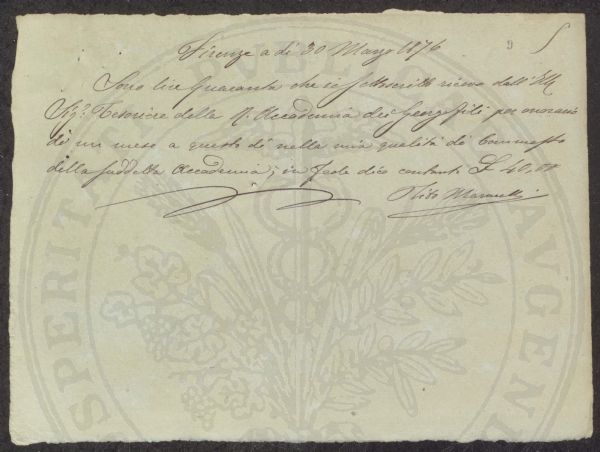 Firenze a dì 30 Marzo 1876
Sono lire Quaranta che io sottoscritto ricevo dall' Ill
Sig.r Tesoriere della R. Accademia dei Georgofili per onorario
di un mese a questo dì nella mia qualità di Commesso
della suddetta Accademia; in fede dico contanti £ 40,00
PROSPERITATI PUBLICAE AUGENDAE